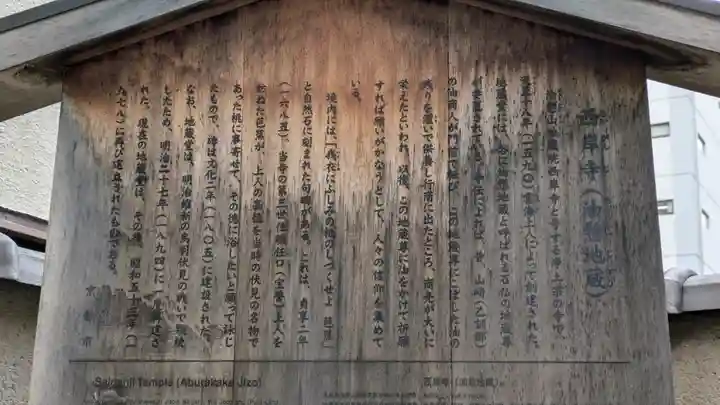 西岸寺（油懸地蔵）
油懸山地蔵院西岸寺と号する浄土宗の寺で、
天正十八年（一五九〇）雲海上人によって創建された。
地蔵堂には、俗に油懸地蔵と呼ばれる石仏の地蔵尊
が安置されている。寺伝によれば、昔、山崎（乙訓郡）
の油商人が門前で転び、この地蔵尊にこぼした油の
残りを灌いで供養し行商に出たところ、商売が大いに
栄えたといわれ、以後、この地蔵尊に油をかけて祈願
すれば願いがかなうとして、人々の信仰を集めて
いる。
境内には、「我衣にふしみの桃のしづくせよ 芭蕉」
と自然石に刻まれた句碑がある。これは、貞享二年
（一六八五）、当寺の第三世住職任口（宝誉）上人を
訪ねた芭蕉が、上人の高徳を当時の伏見の名物で
あった桃に事寄せて、その徳に浴したいと願って詠じ
たもので、碑は文化二年（一八〇五）に建設された。
なお、地蔵堂は、明治維新の鳥羽伏見の戦いで類焼
したため、明治二十七年（一八九四）に一度建立さ
れた。現在の地蔵堂は、その後、昭和五十三年（一
九七八）に再び建立されたものである。
京都市
Saiganji Temple (Aburakake Jizo)
西岸寺（油懸地蔵）